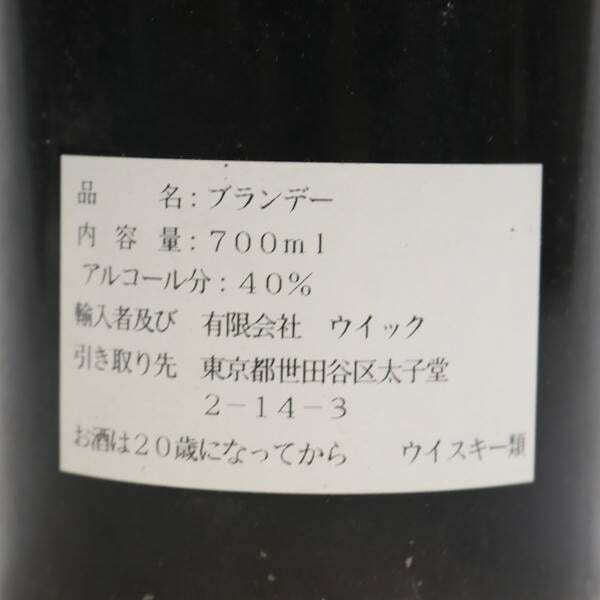 品　　名：ブランデー
内 容 量：７００ｍｌ
アルコール分：４０％
輸入者及び　有限会社　ウイック
引き取り先　東京都世田谷区太子堂
２－１４－３
お酒は２０歳になってから　　ウイスキー類